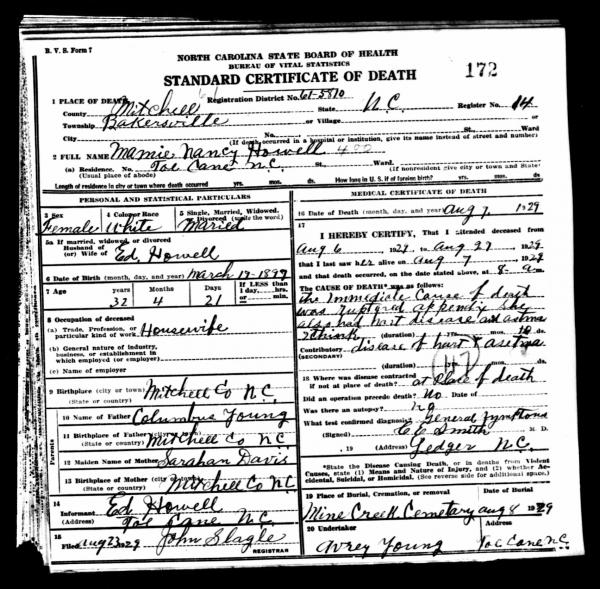 B. V. S. Form 7
NORTH CAROLINA STATE BOARD OF HEALTH
BUREAU OF VITAL STATISTICS
STANDARD CERTIFICATE OF DEATH
172
1 PLACE OF DEATH
Registration District No. 61-5870
County Mitchell State N.C. Register No. 14
Township Bakersville or Village
City No. St., Ward
(If death occurred in a hospital or institution, give its name instead of street and number)
2 FULL NAME Mamie Nancy Howell 400
(a) Residence. No. Toe Cane N.C. St., Ward.
(Usual place of abode) (If nonresident give city or town and State)
Length of residence in city or town where death occurred yrs. mos. ds. How long in U. S. if of foreign birth? yrs. mos. ds.
PERSONAL AND STATISTICAL PARTICULARS
3 Sex 4 Color or Race 5 Single, Married, Widowed, Divorced (write the word)
Female White Maried
5a If married, widowed, or divorced
Husband of
(or) Wife of Ed Howell
6 Date of Birth (month, day, and year) March 17-1897
7 Age Years Months Days If LESS than
1 day, hrs.
or min.
32 4 21
8 Occupation of deceased
(a) Trade, Profession, or
particular kind of work Housewife
(b) General nature of industry,
business, or establishment in
which employed (or employer)
(c) Name of employer
9 Birthplace (city or town) Mitchell Co N.C.
(State or country)
Parents
10 Name of Father Columbus Young
11 Birthplace of Father
(State or country) Mitchell Co NC
12 Maiden Name of Mother Sarahan Davis
13 Birthplace of Mother (city or town)
(State or country) Mitchell Co NC
14
Informant Ed Howell
(Address) Toe Cane N.C.
15
Filed Aug 23, 1929 John Slagle
REGISTRAR
MEDICAL CERTIFICATE OF DEATH
16 Date of Death (month, day, and year) Aug 7 1929
17
I HEREBY CERTIFY, That I attended deceased from
Aug 6 1929, to Aug 27, 1929
that I last saw her alive on Aug 7, 1929
and that death occurred, on the date stated above, at 8- a m.
The CAUSE OF DEATH* was as follows:
the Immediate Cause of death
was ruptured appemix she
also had hart disease and asthma
I think
(duration) yrs. 10 mos. ds.
Contributory disease of hart & asthma
(SECONDARY)
(duration) yrs. mos. ds.
117
18 Where was disease contracted
if not at place of death? at place of death
Did an operation precede death? No. Date of
Was there an autopsy? no
What test confirmed diagnosis? General symptoms
(Signed) C. E. Smith M. D.
, 19 (Address) Ledger N.C.
*State the Disease Causing Death, or in deaths from Violent
Causes, state (1) Means and Nature of Injury, and (2) whether Accidental,
Suicidal, or Homicidal. (See reverse side for additional space.)
19 Place of Burial, Cremation, or removal Date of Burial
Mine Creek Cemetary Aug 8 1929
20 Undertaker (Address)
Avrey Young Toe Cane N.C.